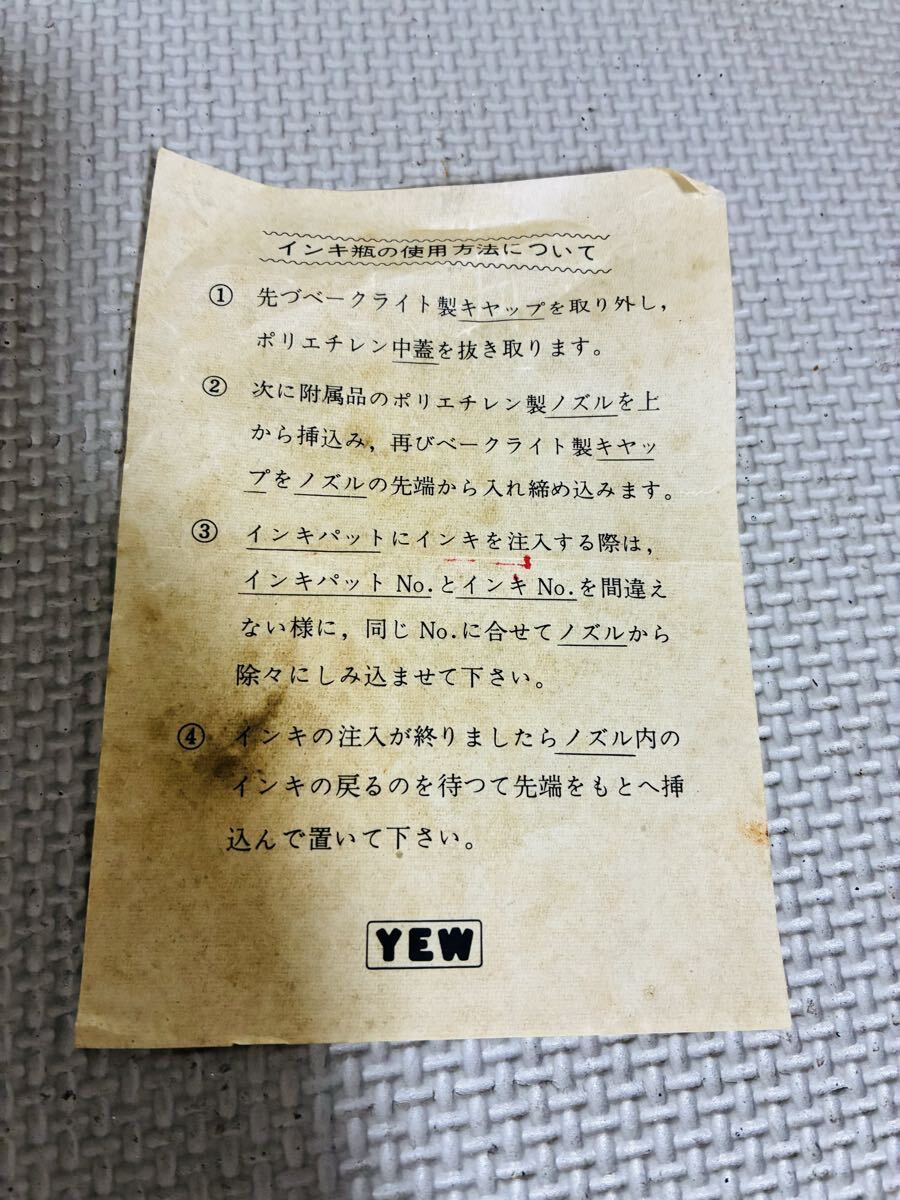 インキ瓶の使用方法について
① 先づベークライト製キヤップを取り外し，
ポリエチレン中蓋を抜き取ります。
② 次に附属品のポリエチレン製ノズルを上
から挿込み，再びベークライト製キヤッ
プをノズルの先端から入れ締め込みます。
③ インキパットにインキを注入する際は，
インキパット No. とインキ No. を間違え
ない様に，同じ No. に合せてノズルから
除々にしみ込ませて下さい。
④ インキの注入が終りましたらノズル内の
インキの戻るのを待つて先端をもとへ挿
込んで置いて下さい。
YEW